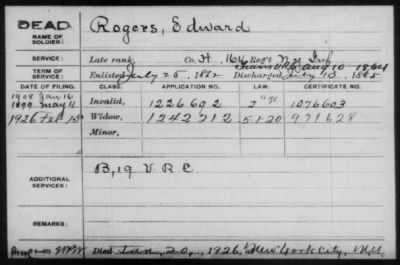 DEAD
NAME OF SOLDIER:
Rogers, Edward
SERVICE:
Late rank, Co. H. 164 Reg't N.Y. Inf
TERM OF SERVICE:
Trans VRC Aug 10 1864
Enlisted July 25, 1862 Discharged July 13, 1865
DATE OF FILING. CLASS. APPLICATION NO. LAW. CERTIFICATE NO.
1908 Jan 16
1899 May 4 Invalid, 1226692 1076603
1926 Feb Widow, 1242212 5-1-20 971628
Minor,
ADDITIONAL SERVICES:
B, 19 V.R.C.
REMARKS:
Died Jan. 20, 1926, at New York City, N.Y.